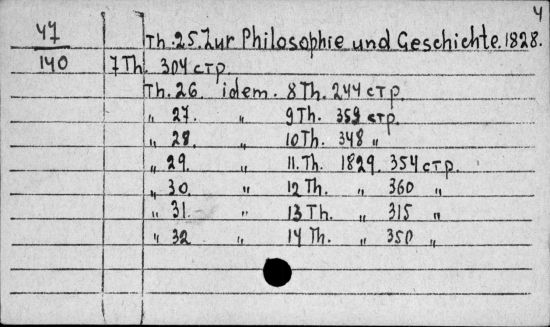 4
47 Th. 25. Zur Philosophie und Geschichte. 1828.
140 7 Th. 304 стр.
Th. 26. idem. 8 Th. 244 стр.
„ 27. „ 9 Th. 359 стр.
„ 28. „ 10 Th. 348 „
„ 29. „ 11. Th. 1829. 354 стр.
„ 30. „ 12 Th. „ 360 „
„ 31. „ 13 Th. „ 315 „
„ 32 „ 14 Th. „ 350 „